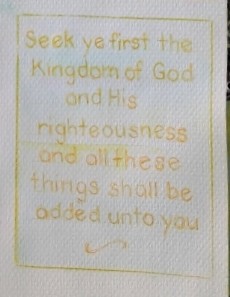 Seek ye first the
Kingdom of God
and His
righteousness
and all these
things shall be
added unto you